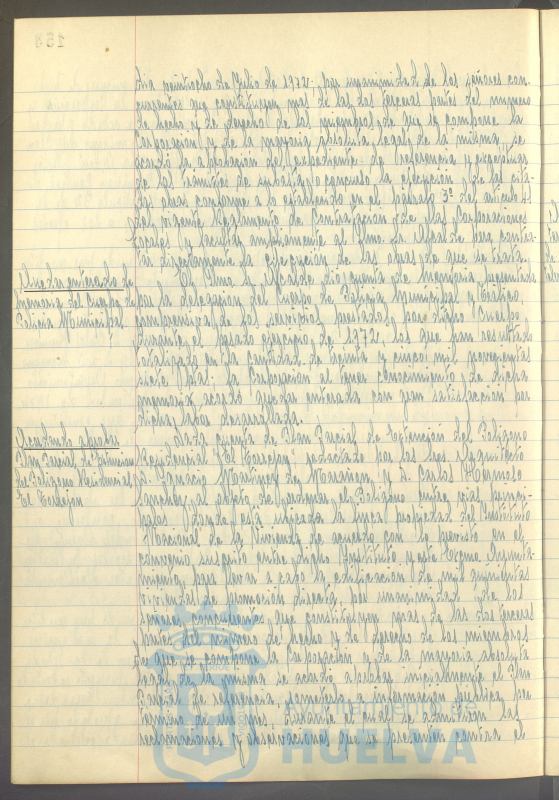 día veintiocho de Julio de 1972, por unanimidad de los señores con-
currentes que constituyen mas de las dos terceras partes del numero
de hecho y de derecho de los miembros de que se compone la
Corporacion y de la mayoria absoluta legal de la misma, se
acordó la aprobacion del expediente de referencia y exceptuar
de los tramites de subasta o concurso la ejecucion de las cita-
das obras conforme a lo establecido en el párrafo 3º del articulo
del vigente Reglamento de Contratacion de las Corporaciones
Locales y facultar ampliamente al Ilmo. Sr. Alcalde para contra-
tar directamente la ejecucion de las obras de que se trata.
Quedar enterado de
memoria del Cuerpo de
Policia Municipal
El Ilmo. Sr. Alcalde dió cuenta de Memoria presentada
por la delegacion del Cuerpo de Policia Municipal y Tráfico,
comprensiva de los servicios prestados por dicho Cuerpo
durante el pasado ejercicio de 1972, los que han resultado
totalizado en la cantidad de treinta y cinco mil novecientas
siete ptas. La Corporacion al tener conocimiento de dicha
memoria acordó quedar enterada con gran satisfaccion por
dicha labor desarrollada.
Acordando aprobar
Plan Parcial de Extension
de Poligono Residencial
El Torrejon
Dada cuenta de Plan Parcial de Extension del Poligono
Residencial "El Torrejon" redactado por los Sres. Arquitectos
D. Ignacio Martinez de y D. Carlos Hermoso
Sanchez al objeto de ordenar el Poligono entre vias princi-
pales donde está ubicada la finca propiedad del Instituto
Nacional de la Vivienda de acuerdo con lo previsto en el
convenio suscrito entre dicho Instituto y este Excmo. Ayunta-
miento, para llevar a cabo la edificacion de mil quinientas
viviendas de promocion directa, por unanimidad de los
señores concurrentes que constituyen mas de las dos terceras
partes del numero de hecho y de derecho de los miembros
de que se compone la Corporacion y de la mayoria absoluta
legal de la misma se acordó aprobar inicialmente el Plan
Parcial de referencia, someterlo a informacion publica por
termino de un mes, durante el cual se admitiran las
reclamaciones y observaciones que se presenten contra el
Ayuntamiento de
HUELVA